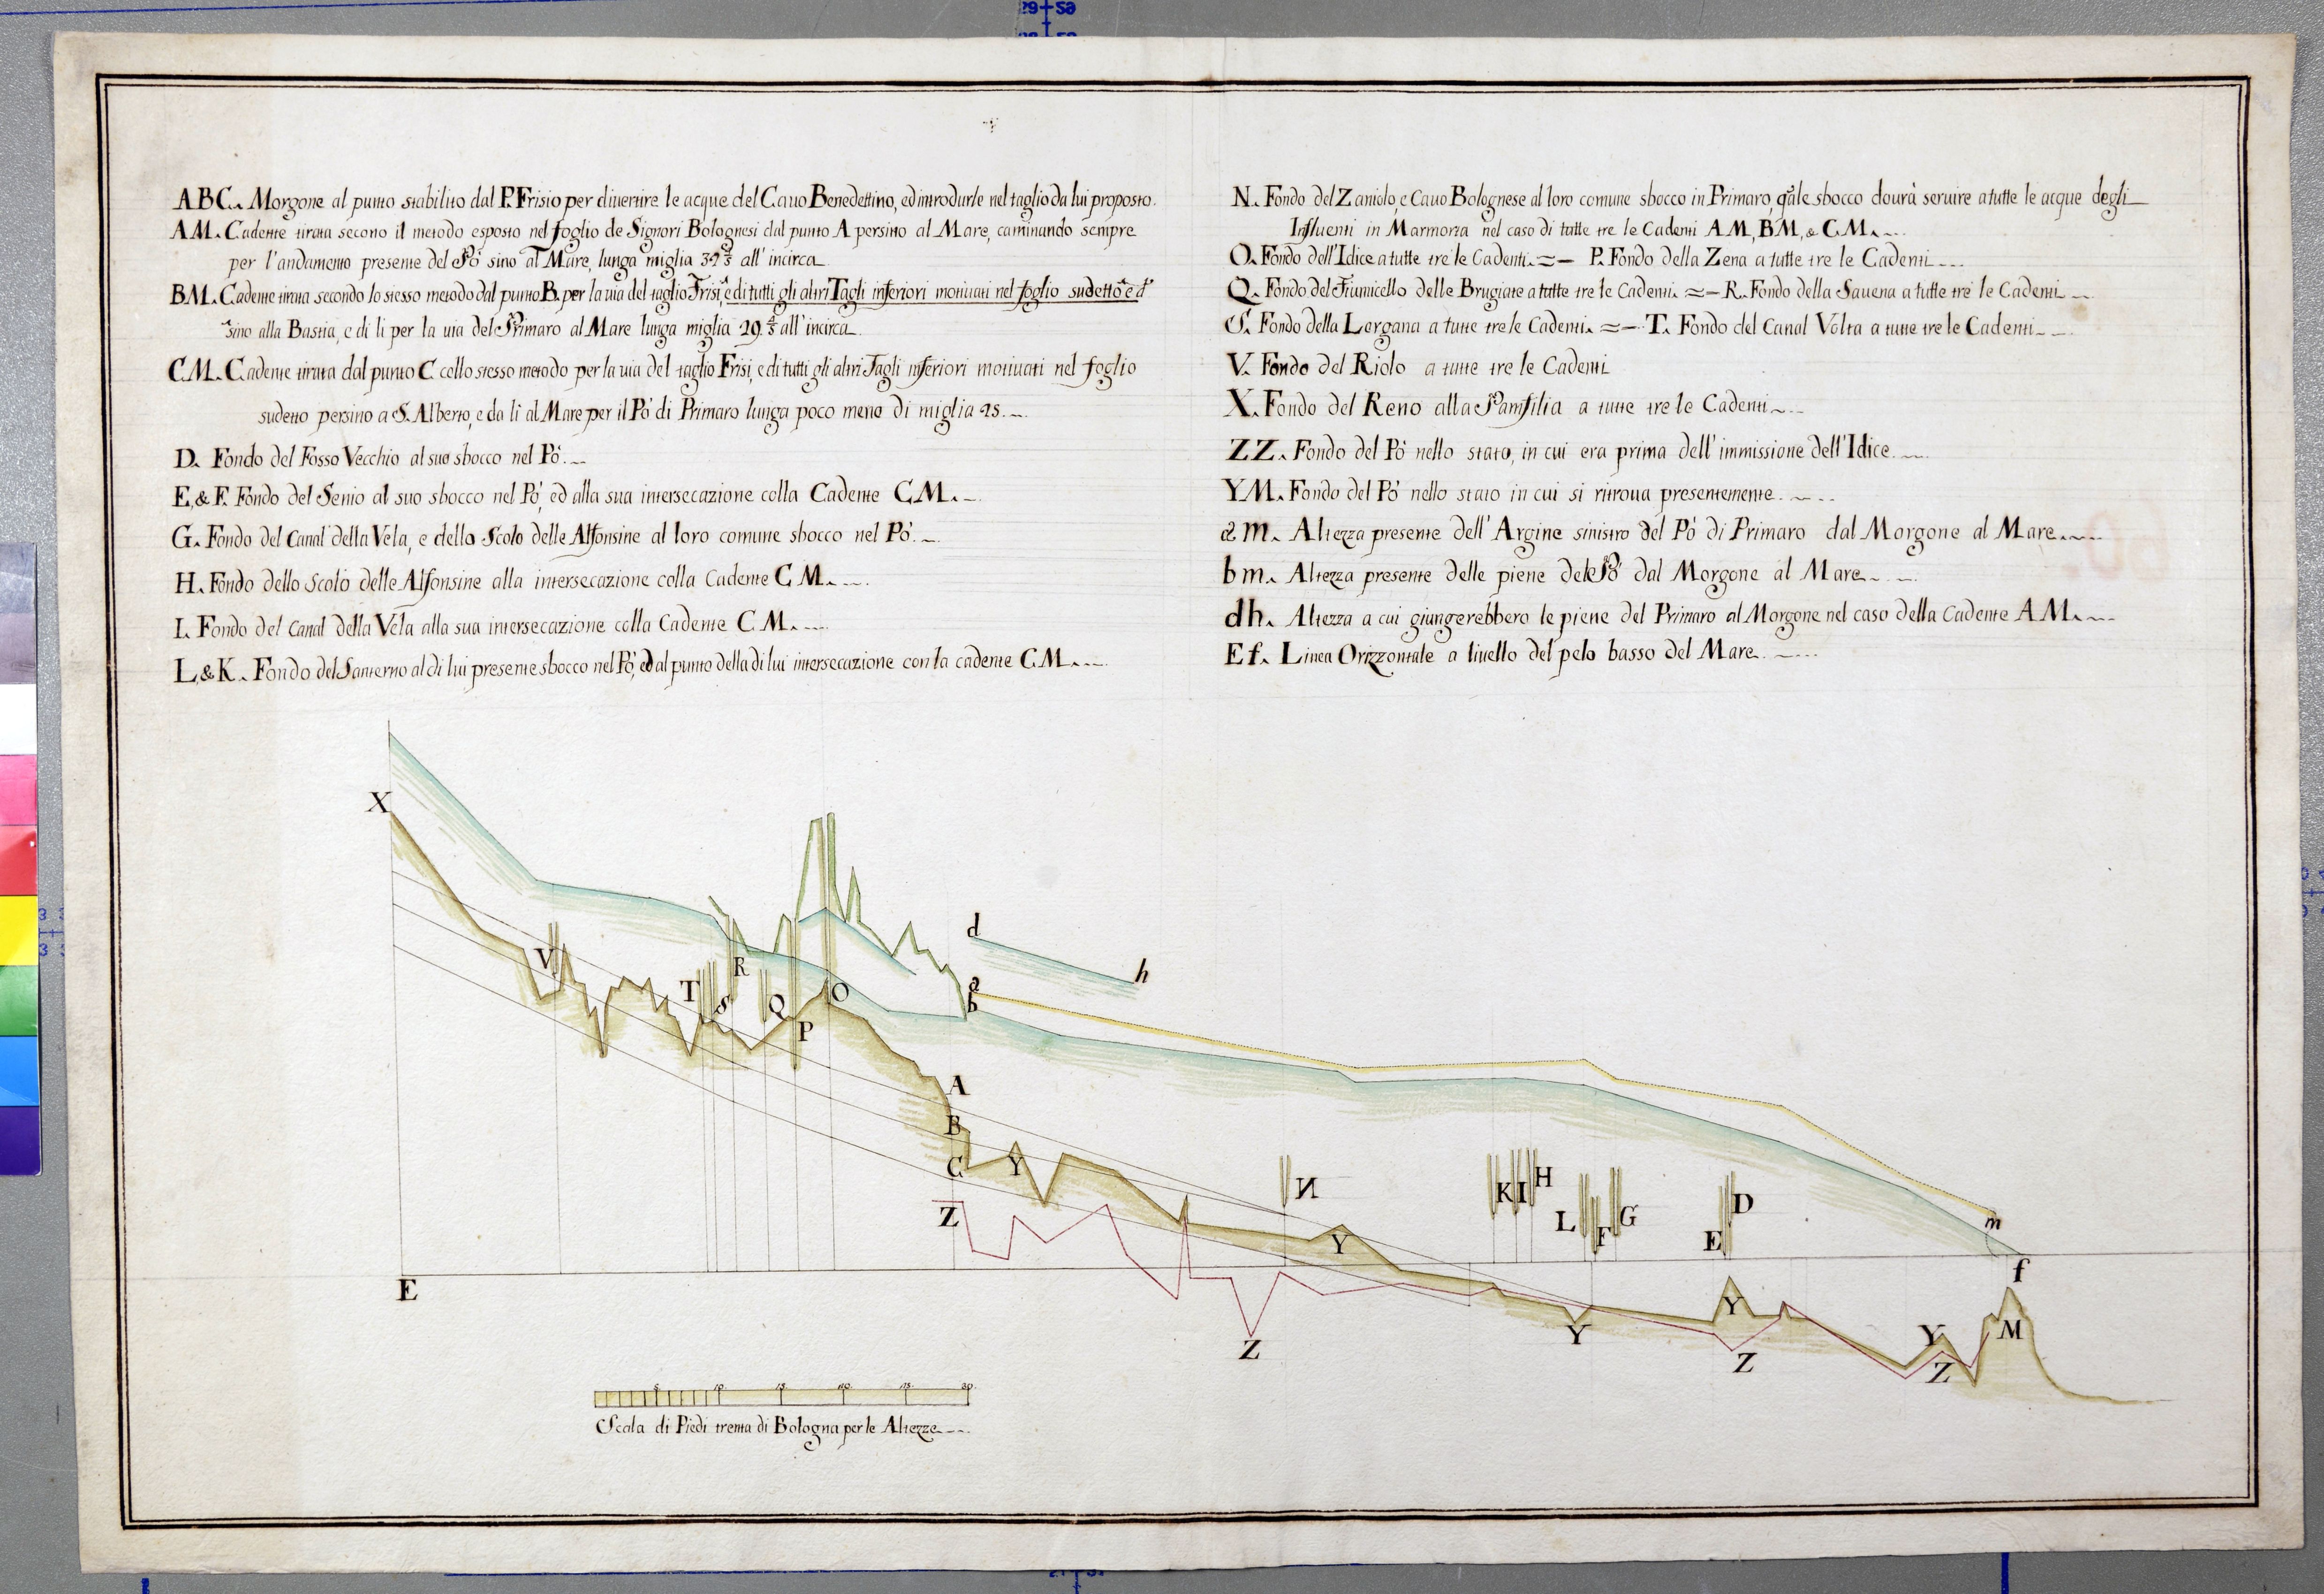 ABC. Morgone al punto stabilito dal P. Frisio per diuertire le acque del Cauo Benedettino, ed introdurle nel taglio da lui proposto.
AM. Cadente tirata secono il metodo esposto nel foglio de Signori Bolognesi dal punto A persino al Mare, caminando sempre
per l'andamento presente del Pò sino al Mare, lunga miglia all'incirca
BM. Cadente tirata secondo lo stesso metodo dal punto B. per la uia del taglio Frisi, e di tutti gli altri Tagli inferiori motiuati nel foglio sudetto
sino alla Bastia, e di li per la uia del Primaro al Mare lunga miglia 29. 4/5 all'incirca
C.M. Cadente tirata dal punto C. collo stesso metodo per la uia del taglio Frisi, e di tutti gli altri Tagli inferiori motiuati nel foglio
sudetto persino a S. Alberto, e da li al Mare per il Pò di Primaro lunga poco meno di miglia 25.
D. Fondo del Fosso Vecchio al suo sbocco nel Pò.
E, & F. Fondo del Senio al suo sbocco nel Pò, ed alla sua intersecazione colla Cadente C.M.
G. Fondo del Canal della Vela, e dello Scolo delle Alfonsine al loro comune sbocco nel Pò.
H. Fondo dello Scolo delle Alfonsine alla intersecazione colla Cadente C M.
I. Fondo del Canal della Vela alla sua intersecazione colla Cadente C M.
L, & K. Fondo del Santerno al di lui presente sbocco nel Pò, ed al punto della di lui intersecazione con la cadente C.M.
N. Fondo del Zaniolo, e Cauo Bolognese al loro comune sbocco in Primaro, qale sbocco dourà seruire a tutte le acque degli
Influenti in Marmorta nel caso di tutte tre le Cadenti AM, BM, & CM.
O. Fondo dell'Idice a tutte tre le Cadenti. P. Fondo della Zena a tutte tre le Cadenti
Q. Fondo del Fiumicello delle Brugiate a tutte tre le Cadenti. R. Fondo della Sauena a tutte tre le Cadenti
S. Fondo della Lorgana a tutte tre le Cadenti. T. Fondo del Canal Volta a tutte tre le Cadenti
V. Fondo del Riolo a tutte tre le Cadenti
X. Fondo del Reno alla Panfilia a tutte tre le Cadenti
ZZ. Fondo del Pò nello stato, in cui era prima dell'immissione dell'Idice.
YM. Fondo del Pò nello stato in cui si ritroua presentemente.
a m. Altezza presente dell'Argine sinistro del Pò di Primaro dal Morgone al Mare.
b m. Altezza presente delle piene del Pò dal Morgone al Mare
dh. Altezza a cui giungerebbero le piene del Primaro al Morgone nel caso della Cadente A M.
Ef. Linea Orizzontale a liuello del pelo basso del Mare
X
V
T
S
R
Q
P
O
d
h
a
b
A
B
C
Y
Z
N
K I H
L F G
E D
m
f
E
Y
Z
Y
Y
Z
Y
Z
M
5. 10. 15. 20. 25. 30.
Scala di Piedi trenta di Bologna per le Altezze